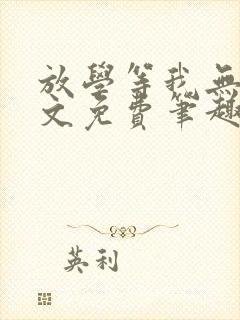 放學等我無
文免費筆趣
英利